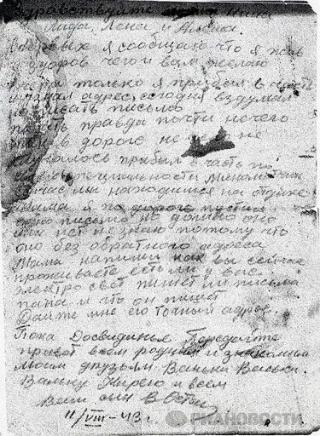 Здравствуйте мама Нина
Лида, Лёня и Алёша.
Во первых я сообщаю что я жив
и здоров чего и вам желаю
только я прибыл в часть
и узнал адрес сегодня вздумал
писать письмо
писать правда почти нечего
в дороге не
случалось прибыл в часть по
специальности
час мы находимся на отдыхе
мама я по дороге пустил
одно письмо но дошло оно
или нет не знаю потому что
оно без обратного адреса
Мама напиши как вы сейчас
проживаете есть ли у вас
электро свет пишет ли письма
папа и что он пишет
Дайте мне его точный адрес.
Пока Досвиданья Передайте
привет всем родным и знакомым
моим друзьям Ваньки
Ваньку и всем
Ваш сын В
11/VIII-43 г.
РИАНОВОСТИ